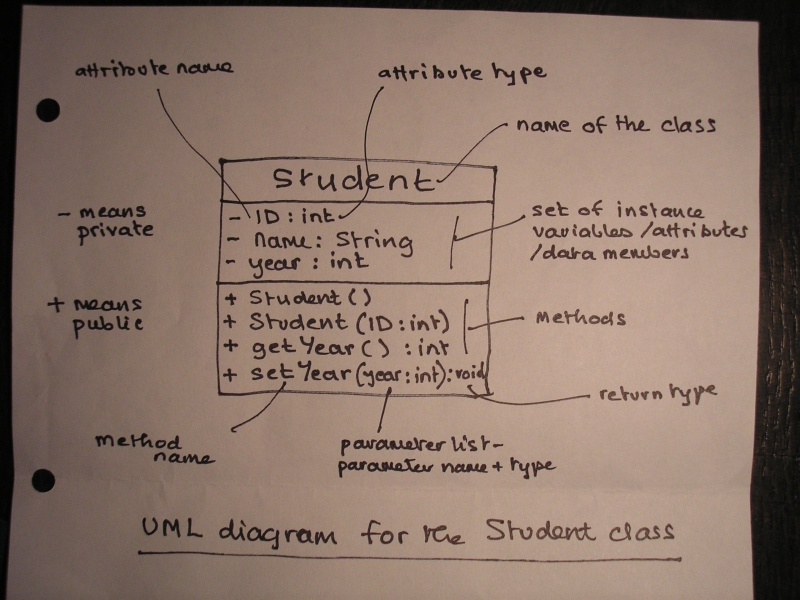 attribute name
attribute type
name of the class
Student
- ID : int
- name : String
- year : int
set of instance
variables /attributes
/data members
- means
private
+ means
public
+ Student ()
+ Student (ID : int)
+ getYear () : int
+ setYear (year : int) : void
methods
return type
method
name
parameter list -
parameter name + type
UML diagram for the Student class